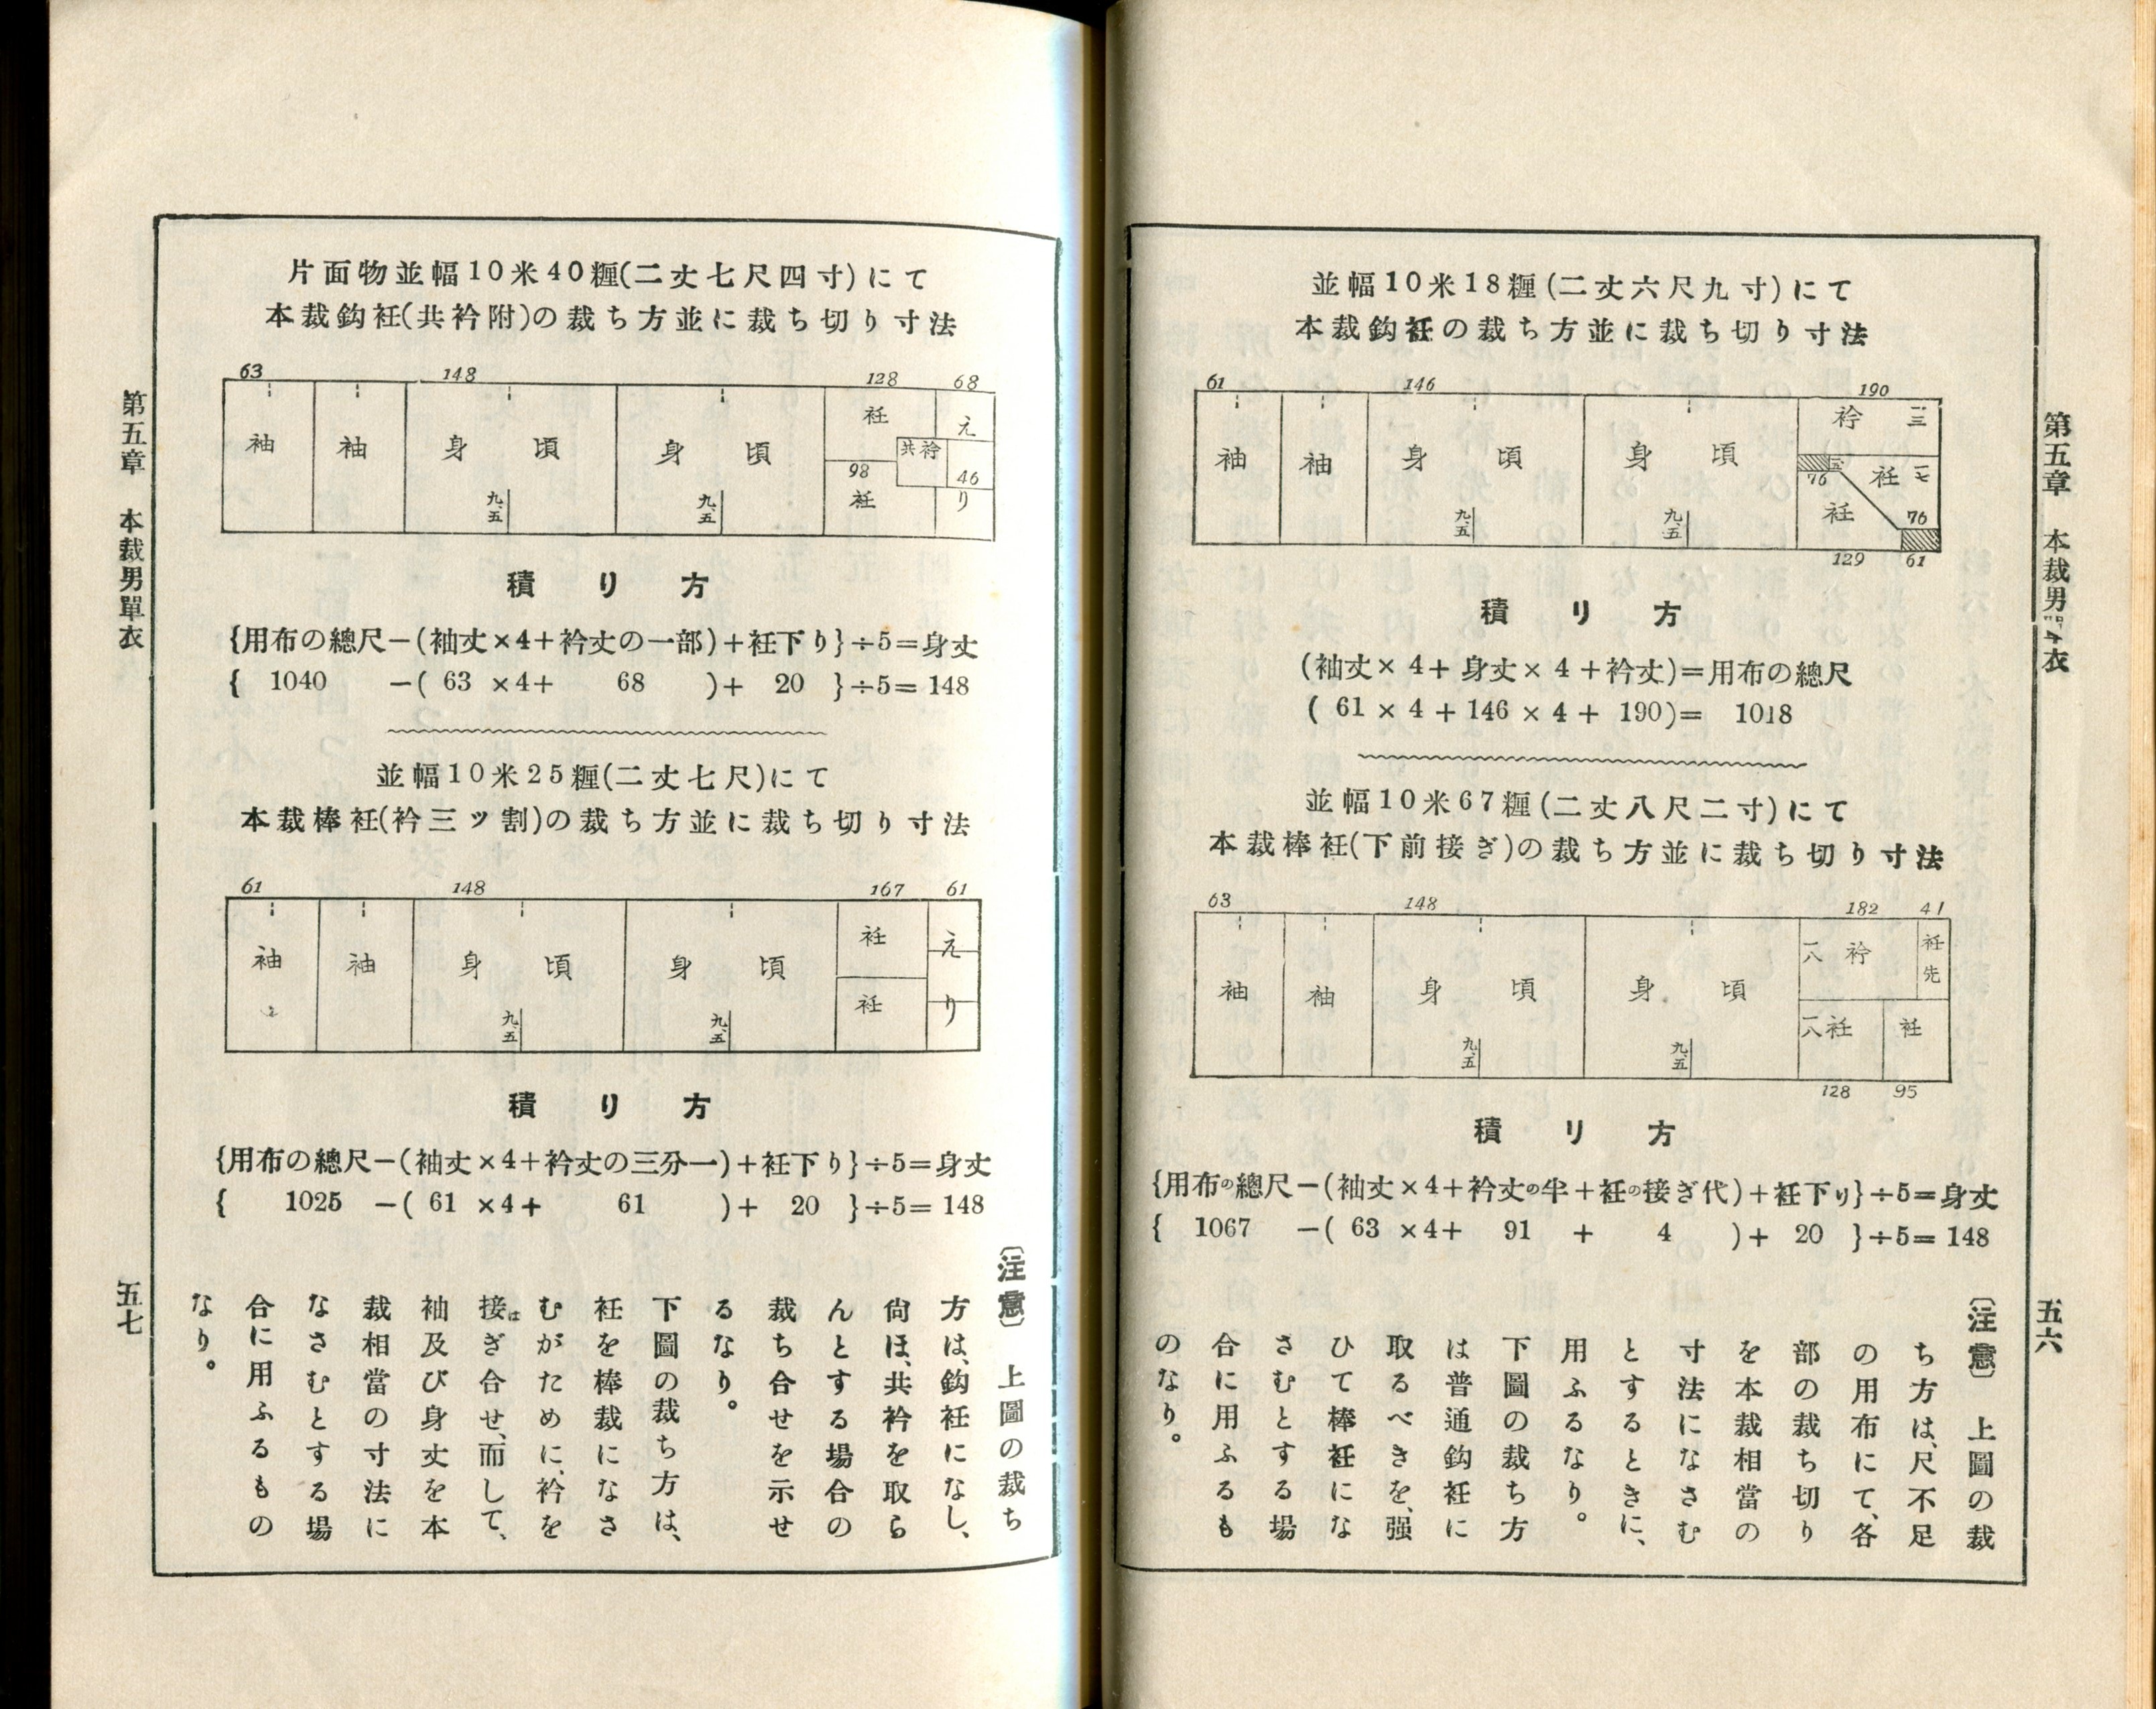 第五章　本裁男單衣
五六
並幅10米18糎(二丈六尺九寸)にて
本裁鈎衽の裁ち方並に裁ち切り寸法
61 146 190
袖 袖 身頃 身頃 衿 三
衽 七
76
衽
76
九、五 九、五
129 61
積り方
(袖丈×4+身丈×4+衿丈)=用布の總尺
( 61 × 4 + 146 × 4 + 190)= 1018
並幅10米67糎(二丈八尺二寸)にて
本裁棒衽(下前接ぎ)の裁ち方並に裁ち切り寸法
63 148 182 41
袖 袖 身頃 身頃 一八 衿 衽先
一八 衽 衽
九、五 九、五
128 95
積り方
{用布の總尺−(袖丈×4+衿丈の半+衽の接ぎ代)+衽下り}÷5=身丈
{ 1067 −( 63 ×4+ 91 + 4 )+ 20 }÷5= 148
〔注意〕　上圖の裁
ち方は、尺不足
の用布にて、各
部の裁ち切り
を本裁相當の
寸法になさむ
とするときに、
用ふるなり。
下圖の裁ち方
は普通鈎衽に
取るべきを、强
ひて棒衽にな
さむとする場
合に用ふるも
のなり。
片面物並幅10米40糎(二丈七尺四寸)にて
本裁鈎衽(共衿附)の裁ち方並に裁ち切り寸法
63 148 128 68
袖 袖 身頃 身頃 衽 え
共衿
98 46
衽 り
九、五 九、五
積り方
{用布の總尺−(袖丈×4+衿丈の一部)+衽下り}÷5=身丈
{ 1040 −( 63 ×4+ 68 )+ 20 }÷5= 148
並幅10米25糎(二丈七尺)にて
本裁棒衽(衿三ッ割)の裁ち方並に裁ち切り寸法
61 148 167 61
袖 袖 身頃 身頃 衽 え
衽 り
九、五 九、五
積り方
{用布の總尺−(袖丈×4+衿丈の三分一)+衽下り}÷5=身丈
{ 1025 −( 61 ×4+ 61 )+ 20 }÷5= 148
〔注意〕　上圖の裁ち
方は、鈎衽になし、
尙ほ、共衿を取ら
んとする場合の
裁ち合せを示せ
るなり。
下圖の裁ち方は、
衽を棒裁になさ
むがために、衿を
接ぎ合せ、而して、
は
袖及び身丈を本
裁相當の寸法に
なさむとする場
合に用ふるもの
なり。
第五章　本裁男單衣
五七